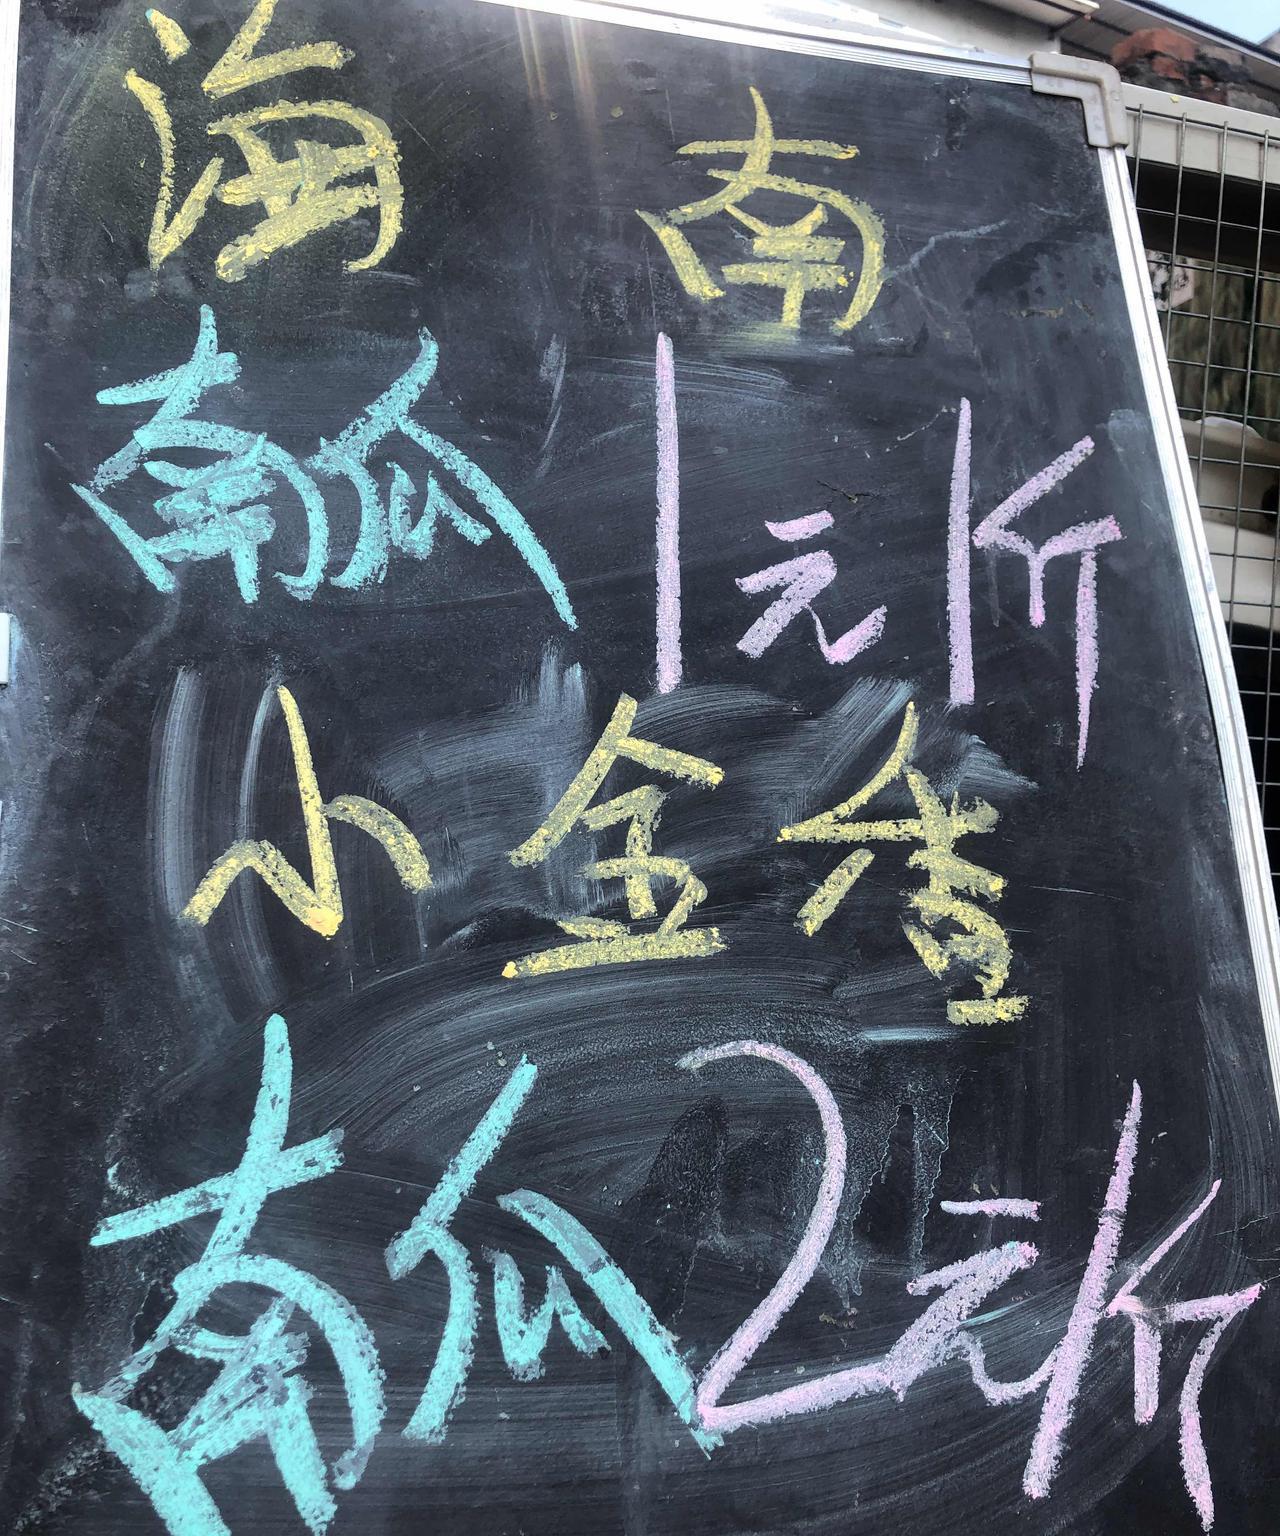 海南
南瓜 1元/斤
小金香
南瓜2元/斤